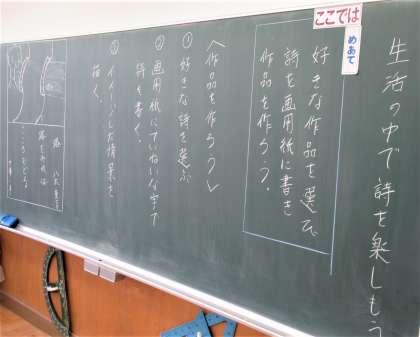 生活の中で詩を楽しもう
ここでは
めあて
好きな作品を選び、
詩を画用紙に書き
作品を作ろう。
〈作品を作ろう〉
① 好きな詩を選ぶ
② 画用紙にていねいな字で
詩を書く。
③ イメージした情景を
描く。